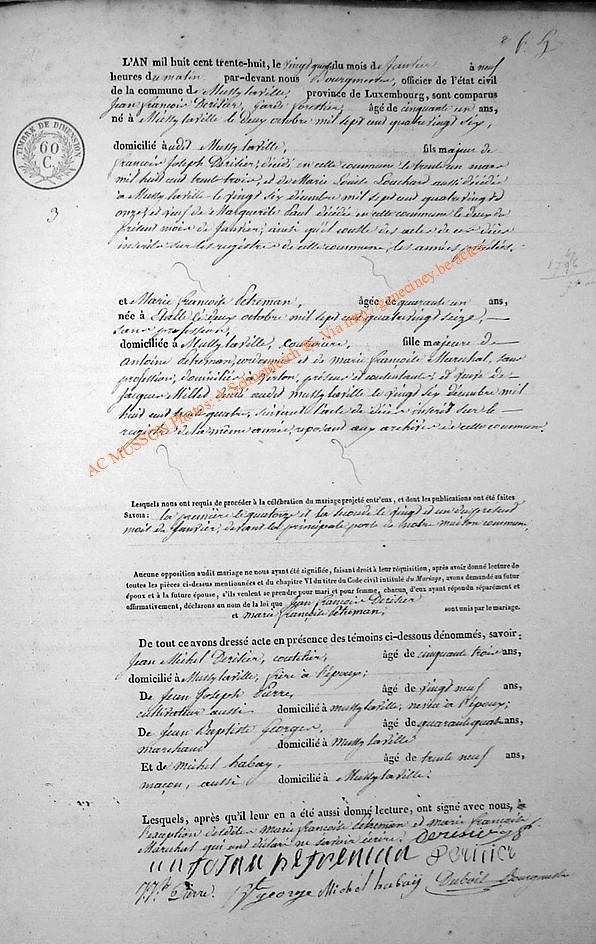 L'AN mil huit cent trente-huit, le vingt quatre du mois de Janvier à neuf
heures du matin par-devant nous Bourgmestre, officier de l'état civil
de la commune de Mussy laville, province de Luxembourg, sont comparus
Jean françois Derisier, Garde forestier, âgé de cinquante un ans,
né à Mussy laville le deux octobre mil sept cent quatre vingt six,
TIMBRE DE DIMENSION
60
C.
domicilié audit Mussy laville, fils majeur de
francois Joseph Derisier, décédé en cette commune le trente un mars
mil huit cent trente trois, et de Marie Louise Louchard aussi décédée
à Mussy laville le vingt six décembre mil sept cent quatre vingt
onze, et veuf de Marguerite décédée en cette commune le deux du
présent mois de Janvier, ainsi qu'il conste des actes de ces décès
inscrits sur les registres de cette commune, les années précitées.
3
et Marie françoise Schreman, âgée de quarante un ans,
née à Etalle le deux octobre mil sept cent quatre vingt seize,
sans profession,
domiciliée à Mussy laville, couturière, fille majeure de
antoine Schreman, cordonnier et de marie francoise Marechal, sans
profession, domiciliés à Virton, présens et consentants, et veuve de
Jacques décédé audit mussy laville le vingt six décembre mil
huit cent trente quatre, suivant l'acte de décès inscrit sur le
registre de la même année, reposant aux archives de cette commune.
AC MUSSON Photos: A Schumatsch ©. Via http://geneciney.be actes
Lesquels nous ont requis de procéder à la célébration du mariage projeté entr'eux, et dont les publications ont été faites
Savoir: la première le quatorze et la seconde le vingt et un du présent
mois de Janvier, devant la principale porte de notre maison commune,
Aucune opposition audit mariage ne nous ayant été signifiée, faisant droit à leur réquisition, après avoir donné lecture de
toutes les pièces ci-dessus mentionnées et du chapitre VI du titre du Code civil intitulé du Mariage, avons demandé au futur
époux et à la future épouse, s'ils veulent se prendre pour mari et pour femme, chacun d'eux ayant répondu séparément et
affirmativement, déclarons au nom de la loi que Jean françois Derisier
et marie françoise Schreman, sont unis par le mariage.
De tout ce avons dressé acte en présence des témoins ci-dessous dénommés, savoir:
Jean Michel Derisier, âgé de cinquante trois ans,
domicilié à Mussy laville, frère à l'époux;
De Jean Joseph Pierre, âgé de vingt neuf ans,
cultivateur aussi domicilié à mussy laville, neveu à l'époux;
De Jean Baptiste Georges, âgé de quarante quatre ans,
marchand domicilié à mussy laville
Et de Michel habay, âgé de trente neuf ans,
maçon, aussi domicilié à Mussy laville.
Lesquels, après qu'il leur en a été aussi donné lecture, ont signé avec nous, à
l'exception desdites marie françoise Schreman et marie françoise
Marechal qui ont déclaré ne savoir écrire. Derisier
Derisier
J.J. Pierre. George Michel habay Dubois Bourgmestre